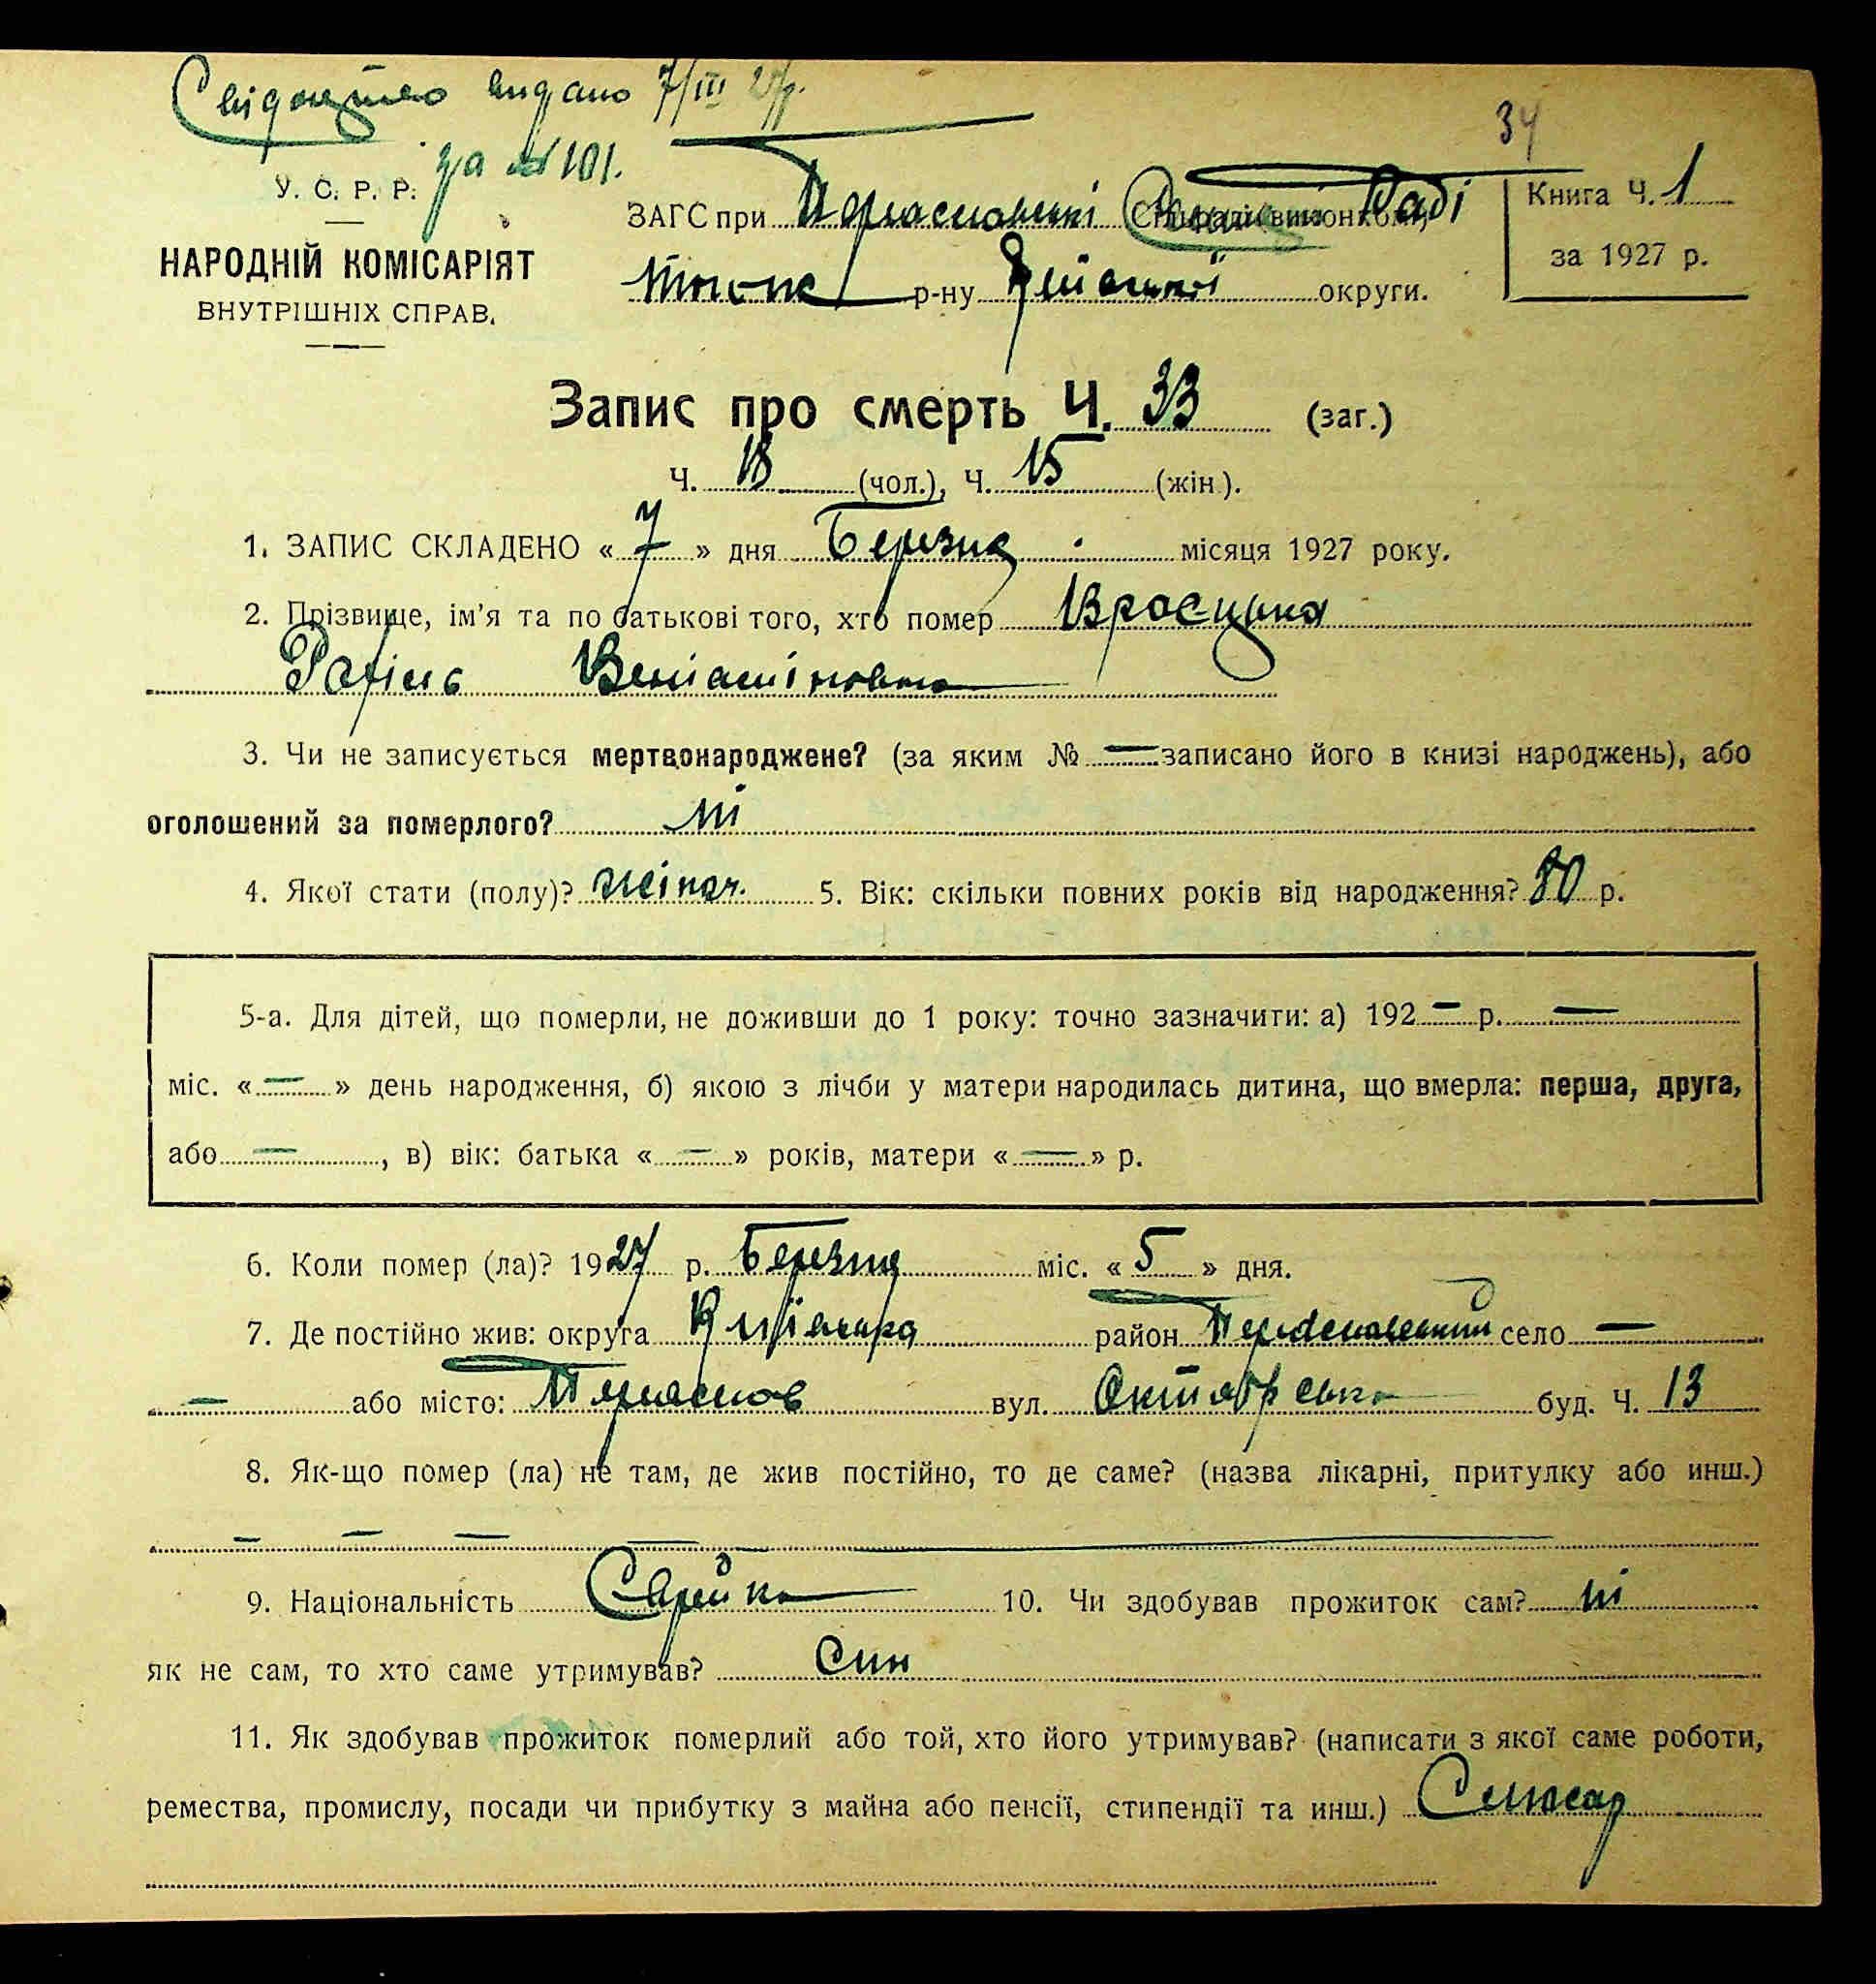 Свідоцтво видано 7/III 27р.
за № 101.
34
У. С. Р. Р.
НАРОДНІЙ КОМІСАРІЯТ
ВНУТРІШНІХ СПРАВ.
ЗАГС при Переяславські Раді
р-ну Київської округи.
Книга Ч. 1
за 1927 р.
Запис про смерть Ч. 33 (заг.)
Ч. 18 (чол.), Ч. 15 (жін.).
1. ЗАПИС СКЛАДЕНО « 7 » дня Березня місяця 1927 року.
2. Прізвище, ім'я та по батькові того, хто помер
Веніаміновна
3. Чи не записується мертвонароджене? (за яким № — записано його в книзі народжень), або
оголошений за померлого? ні
4. Якої стати (полу)? жіноч. 5. Вік: скільки повних років від народження? 80 р.
5-а. Для дітей, що померли, не доживши до 1 року: точно зазначити: а) 192 — р. —
міс. « — » день народження, б) якою з лічби у матери народилась дитина, що вмерла: перша, друга,
або — , в) вік: батька « — » років, матери « — » р.
6. Коли помер (ла)? 1927 р. Березня міс. « 5 » дня.
7. Де постійно жив: округа Київська район Переяславський село —
— або місто: Переяслов вул. Октябрська буд. Ч. 13
8. Як-що помер (ла) не там, де жив постійно, то де саме? (назва лікарні, притулку або инш.)
— — —
9. Національність Єврейка 10. Чи здобував прожиток сам? ні
як не сам, то хто саме утримував? Син
11. Як здобував прожиток померлий або той, хто його утримував? (написати з якої саме роботи,
ремества, промислу, посади чи прибутку з майна або пенсії, стипендії та инш.)